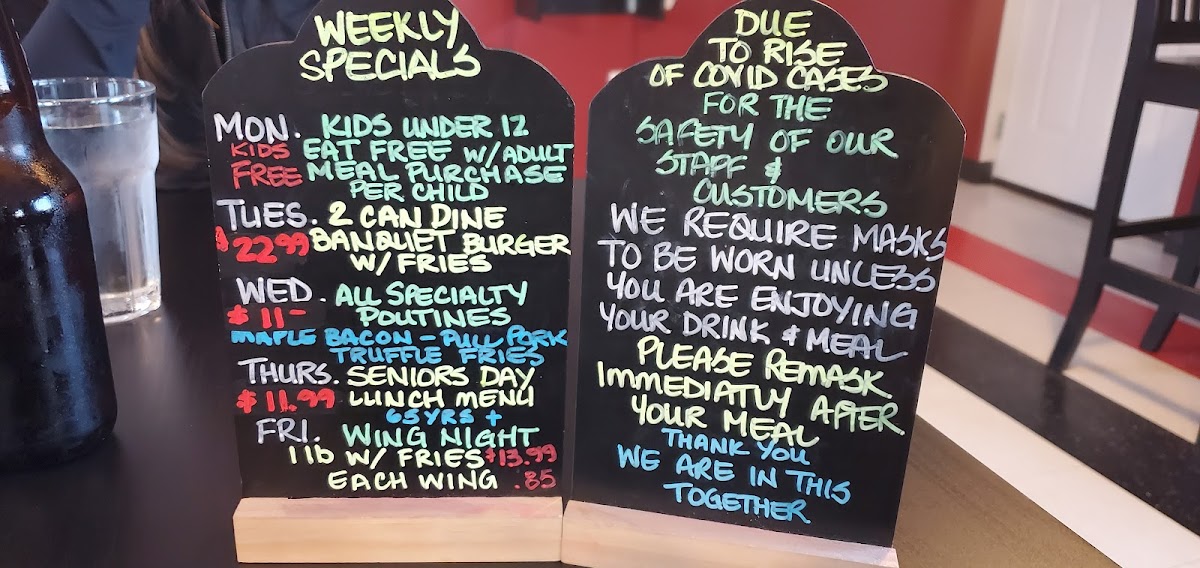 WEEKLY
SPECIALS
MON. KIDS UNDER 12
KIDS EAT FREE W/ADULT
FREE MEAL PURCHASE
PER CHILD
TUES. 2 CAN DINE
$22.99 BANQUET BURGER
W/ FRIES
WED. ALL SPECIALTY
$11- POUTINES
MAPLE BACON - PULL PORK
TRUFFLE FRIES
THURS. SENIORS DAY
$11.99 LUNCH MENU
65YRS +
FRI. WING NIGHT
1 lb W/ FRIES $13.99
EACH WING .85
DUE
TO RISE
OF COVID CASES
FOR THE
SAFETY OF OUR
STAFF &
CUSTOMERS
WE REQUIRE MASKS
TO BE WORN UNLESS
YOU ARE ENJOYING
YOUR DRINK & MEAL
PLEASE REMASK
IMMEDIATLY AFTER
YOUR MEAL
THANK YOU
WE ARE IN THIS
TOGETHER